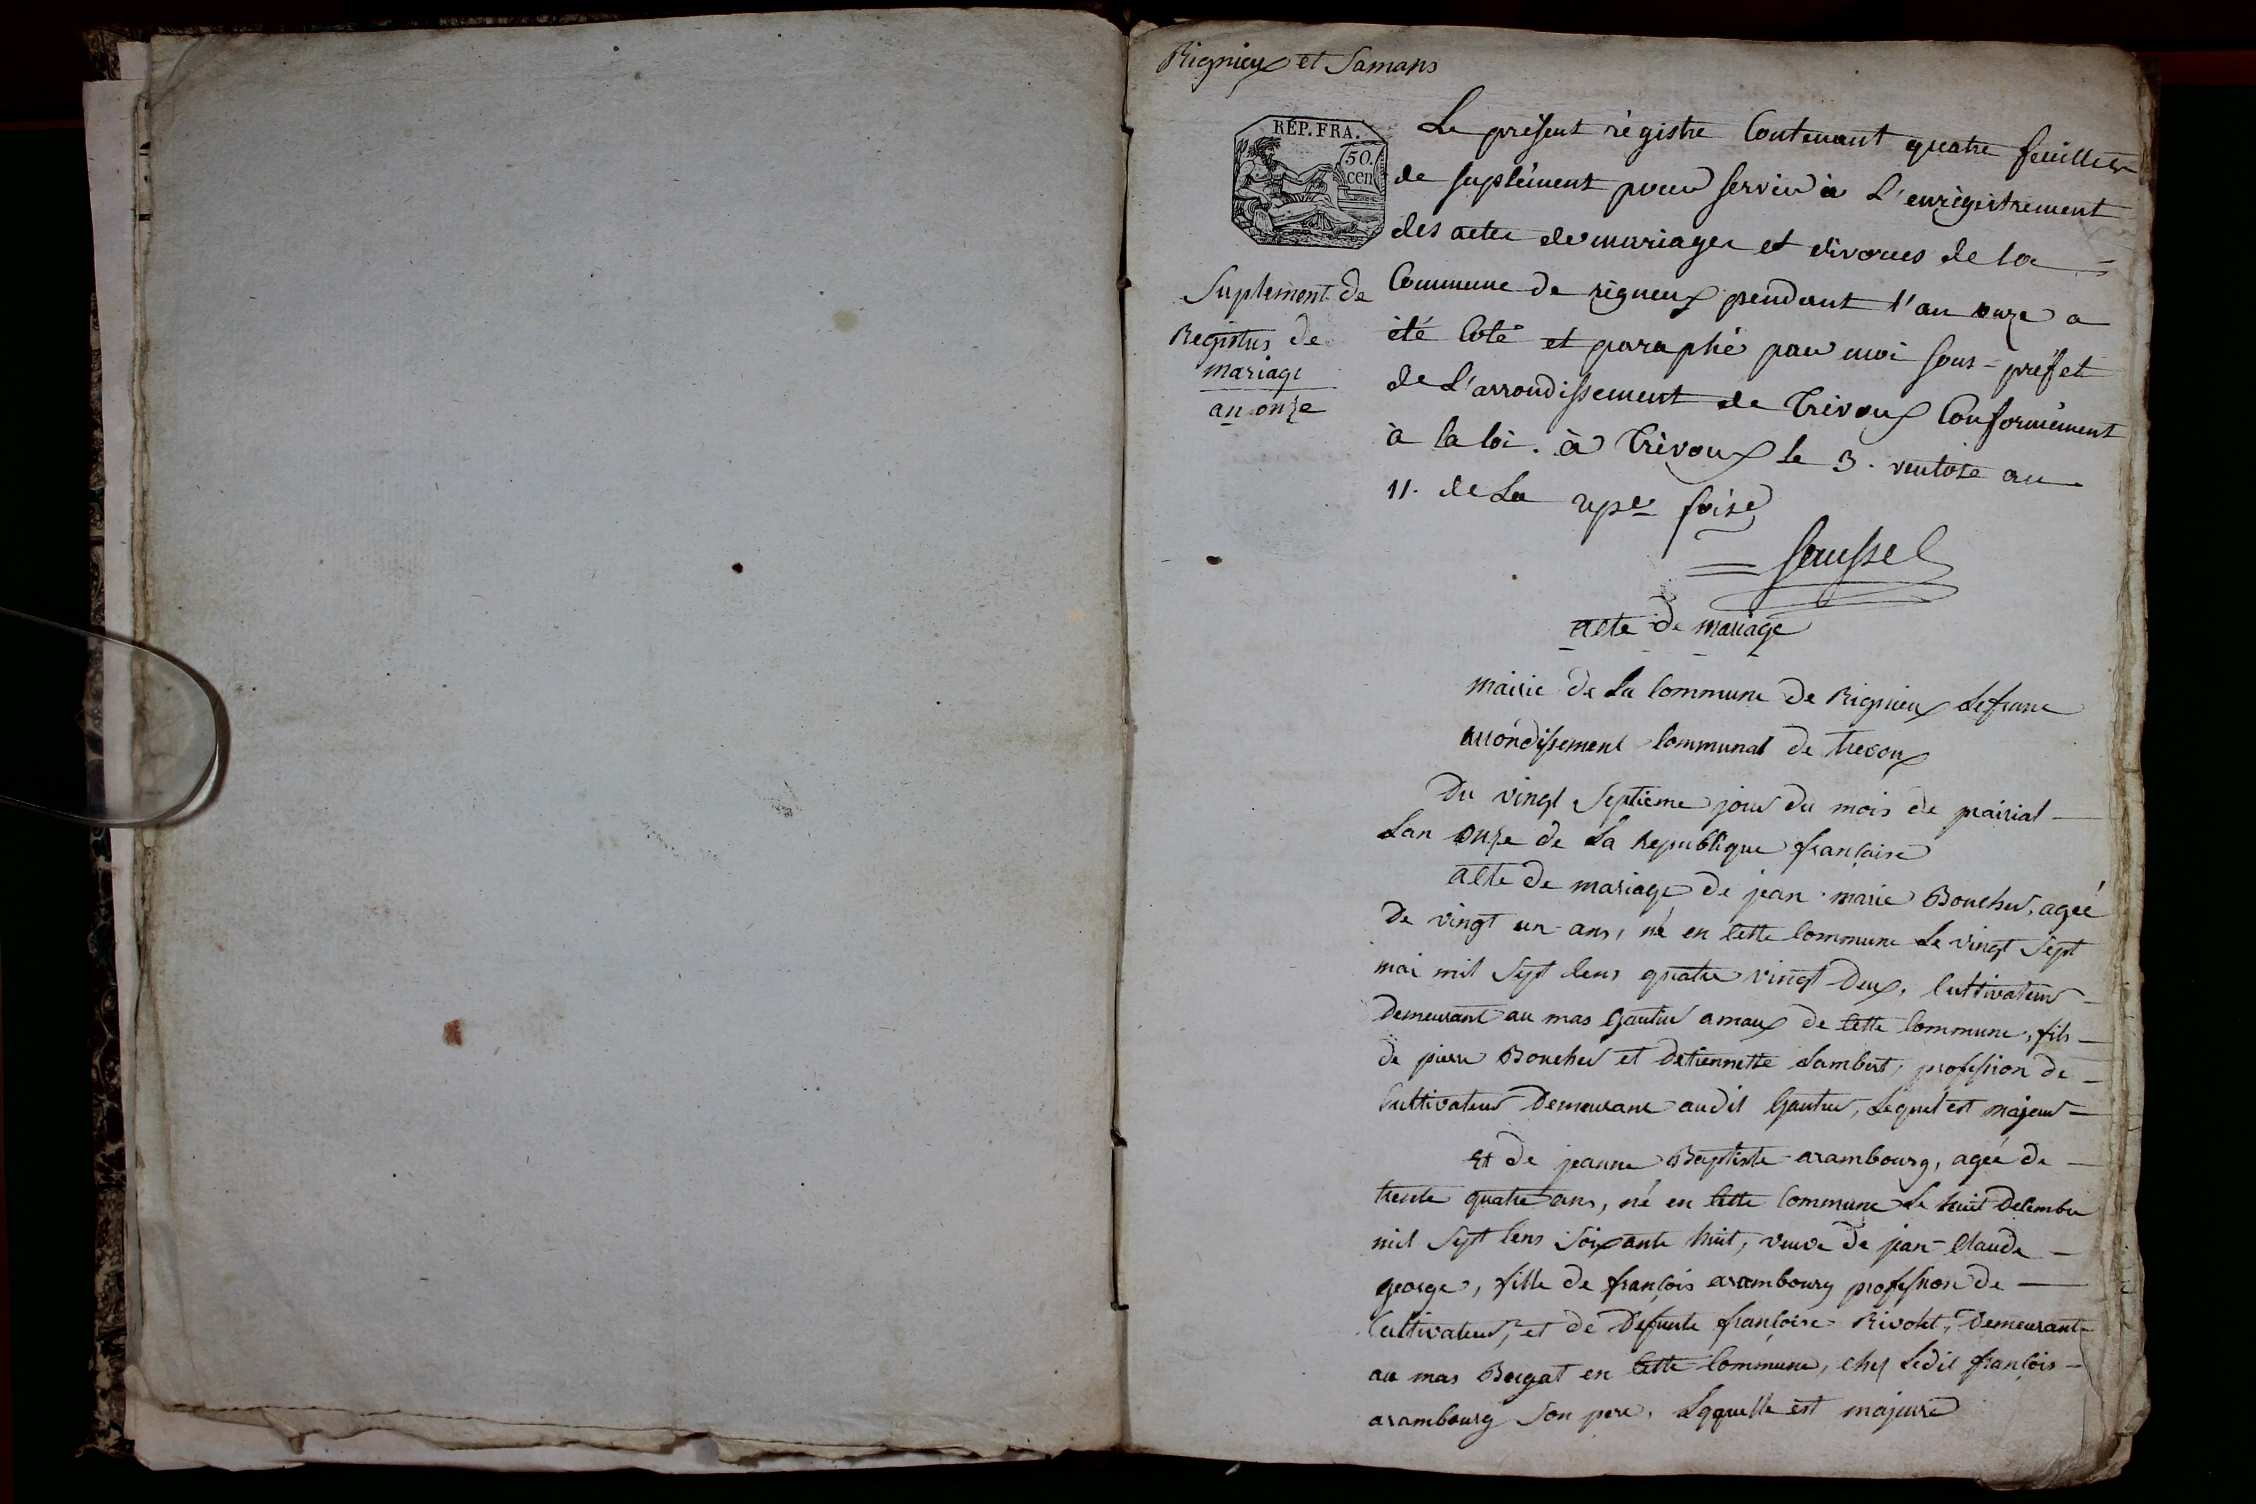 Rignieux et Samans
REP. FRA.
50.
cen
Le présent régistre Contenant quatre feuillets
de suplément pour servir à L'enrégistrement
des actes de mariages et divorces de la
Commune de rigneux pendant l'an onze a
été Coté et paraphé par moi sous-préfet
de L'arrondissement de Trévoux Conformément
à la loi. à Trévoux le 3. ventose an
11. de La rpe. frise
Suplement de
Registres de
mariage
an onze
acte de mariage
mairie de La Commune de Rignieux Lefranc
arrondissement Communal de trevoux
Du vingt Septieme jour du mois de prairial
Lan onze de La Republique francaise
acte de mariage de jean marie Boucher, agée
De vingt un ans, né en Cette Commune Le vingt Sept
mai mil Sept Cens quatre vingt Deux, Cultivateur
Demeurant au mas Gautier amaux de Cette Commune, fils
de pierre Boucher et Detiennette Lambert, profession de
Cultivateur Demeurant audit Gautier, Lequel est majeur
et de jeanne Baptiste arambourg, agée de
trente quatre ans, né en Cette Commune Le huit Decembre
mil Sept Cens Soixante huit, veuve de jean Claude
george, fille de françois arambourg profession de
Cultivateur, et de Defunte françoise Rivolet, Demeurant
au mas Bergat en Cette Commune, chez Ledit françois
arambourg Son pere, Laquelle est majeure